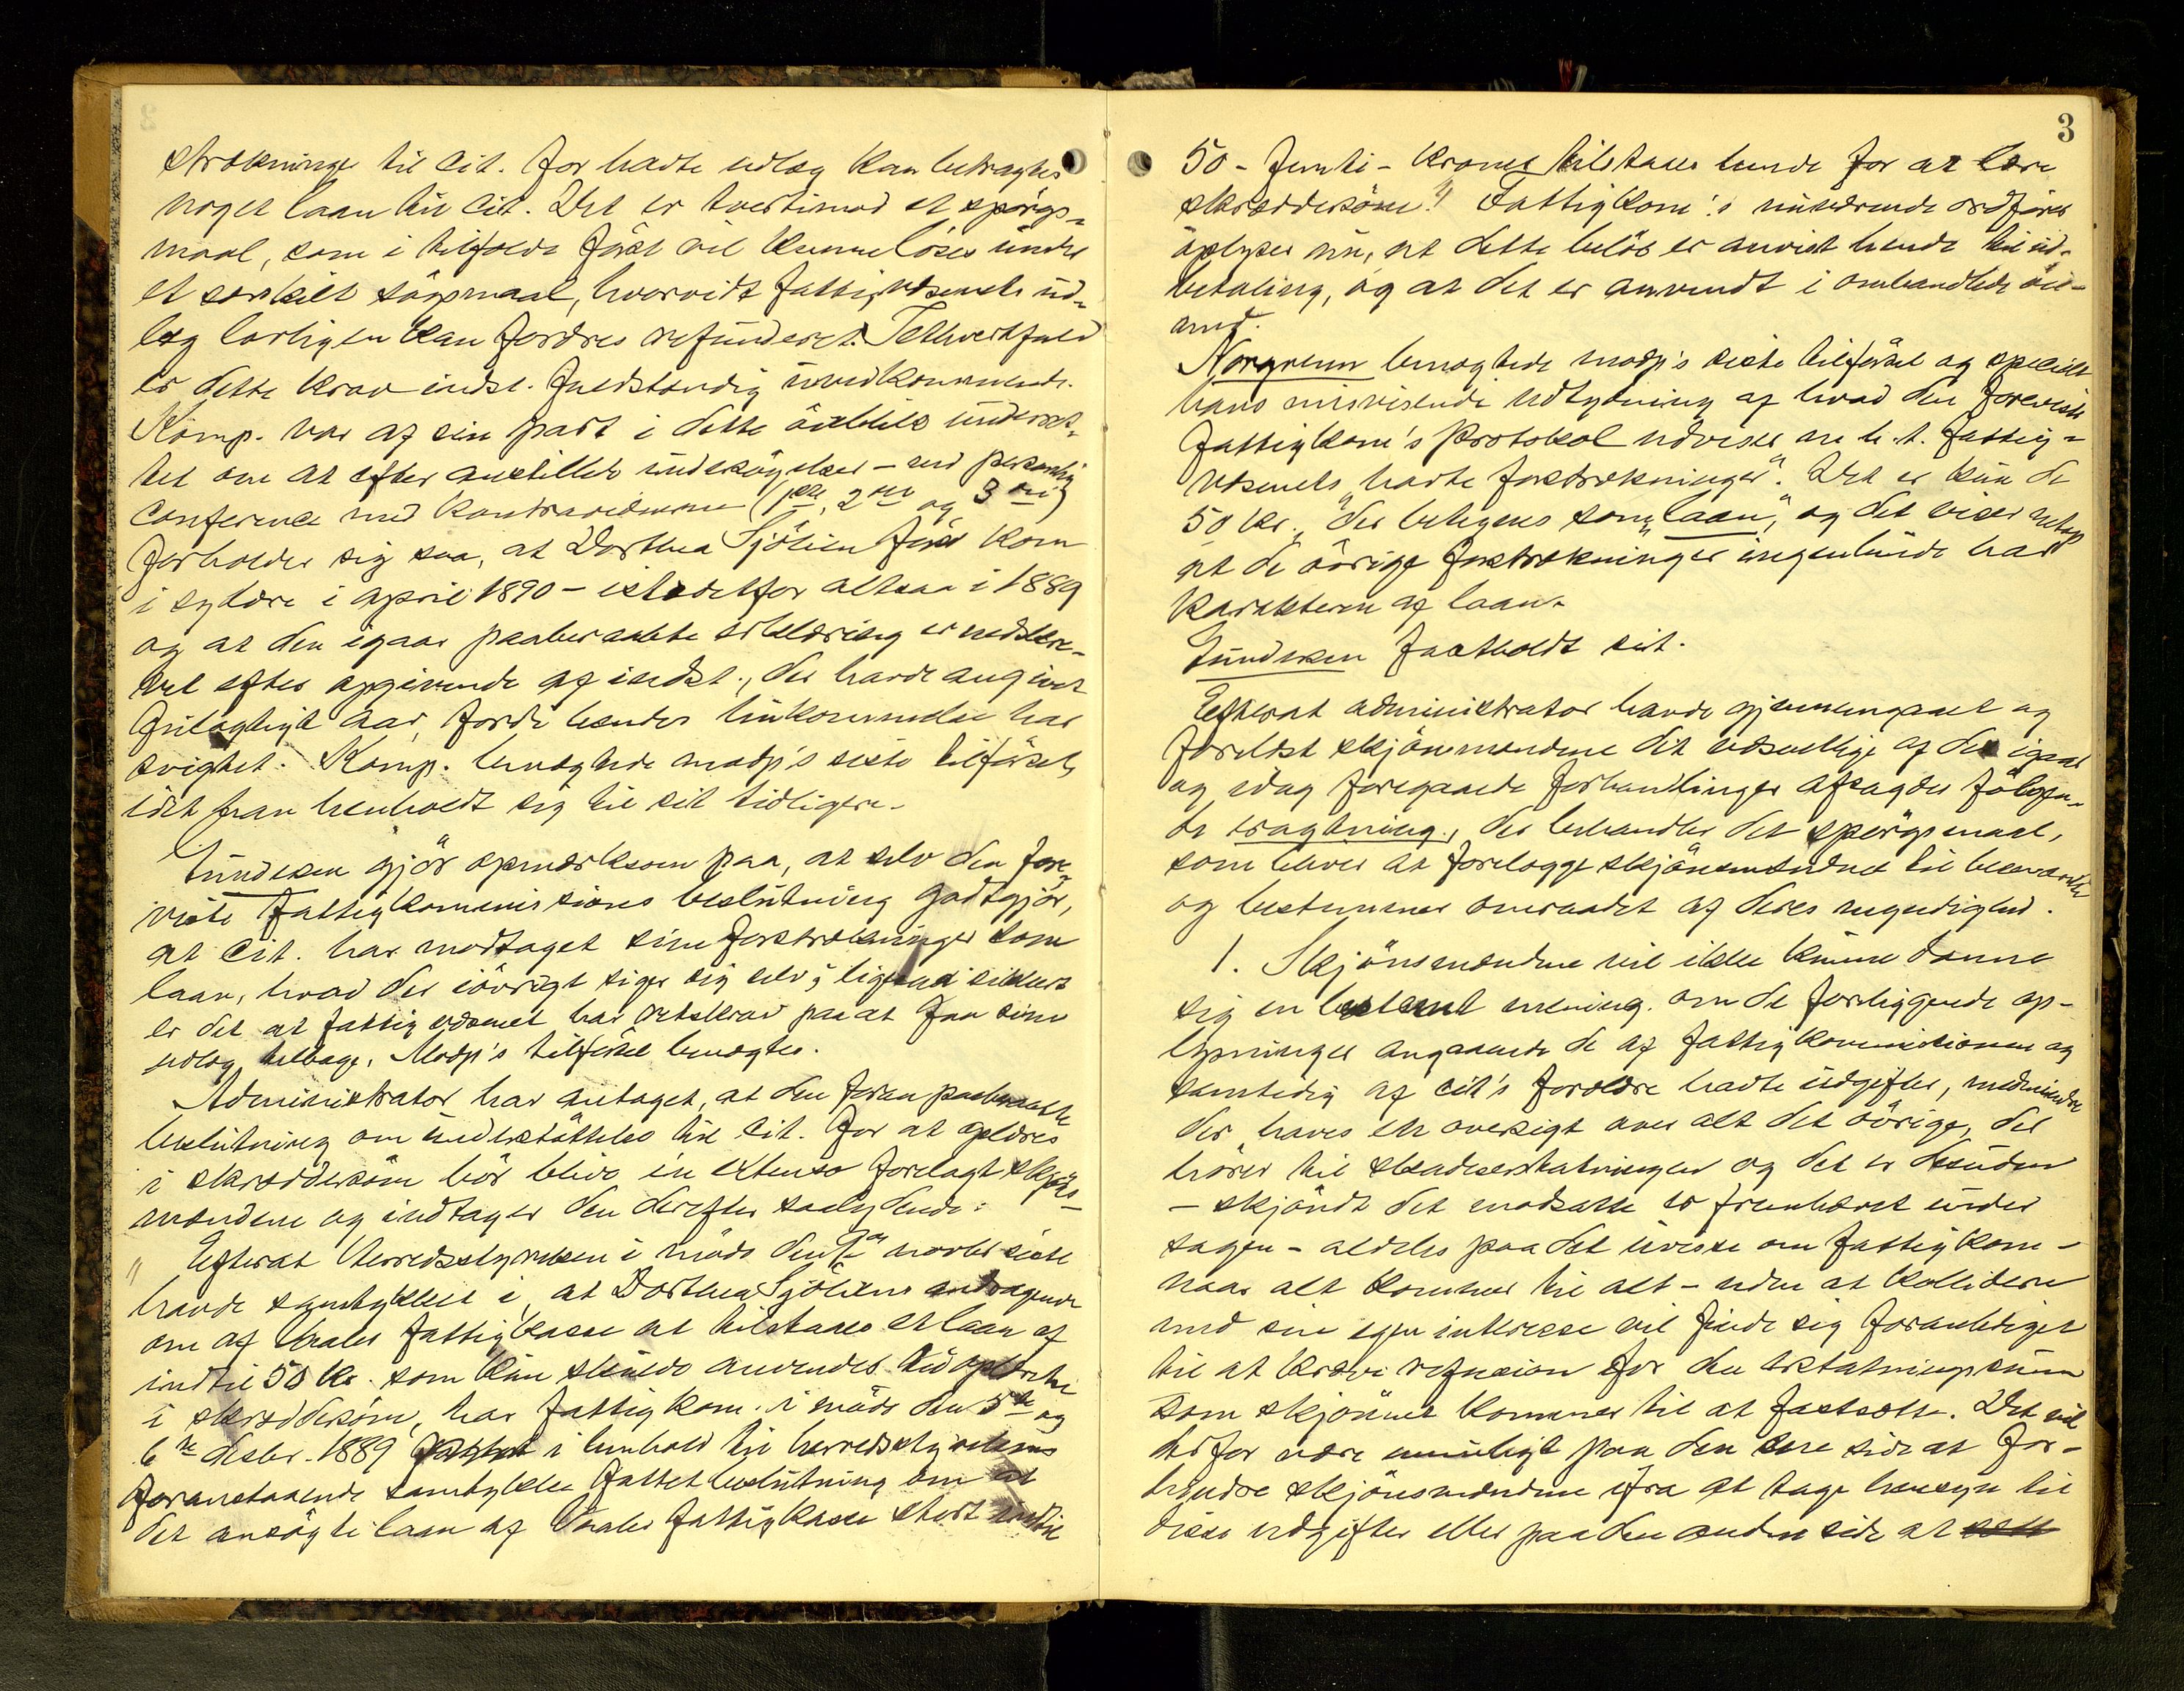 strækninge til Cit. for havte udlæg kan betragtes
noget laan til Cit. Det er tvertimod et spørgs-
maal, som i tilfælde først vil kunne løses under
et særskilt søgsmaal, hvorvidt fattigvæsenets ud-
læg lovligen kan fordres refunderet. Ialhvertfald
er dette krav indst. fuldstændig uvedkommende.
Komp. var af sin part i dette øieblik underret-
tet om at efter anstillede undersøgelser – ved personlig
conference med kontravidnerne (1ste, 2det og 3die)
forholder sig saa, at Dorthea Sjölien först kom
i sylære i april 1890 – istedetfor altsaa i 1889
og at den igaar paaberaabte erklæring er nedskre-
vet efter opgivende af indst., der havde angivet
feilagtigt aar, fordi hendes hukommelse har
svigtet. Komp. benægtede modp's siste tilførsel,
idet han henholdt sig til sit tidligere.
Gundersen gjør opmærksom paa, at selv den fore-
viste Fattigkommissions beslutning godtgjør,
at Cit. har modtaget sine forstrækninger som
laan, hvad der iøvrigt siger sig selv; ligesaa sikkert
er det at fattigvæsenet har retskrav paa at faa sine
udlæg tilbage. Modp's tilførsel benægtes.
Administrator har antaget, at den foran paaberaabte
beslutning om understøttelse til Cit. for at oplæres
i skræddersøm bør blive in extenso forelagt skjøns-
mændene og indtages den derefter saalydende:
" Efterat Herredsstyrelsen i møde den 7de novbr siste
havde samtykket i, at Dorthea Sjöliens andragende
om af Vaaler fattigkasse at tilstaaes et laan af
indtil 50 kr. som kun skulde anvendes til oplærelse
i skræddersøm, har fattigkom. i møde den 5te og
6te desbr. 1889 i henhold til herredsstyrelsens
foranstaaende samtykke fattet beslutning om at
det ansøgte laan af Vaaler fattigkasse stort indtil
3
50 - femti - kroner tilstaaes hende for at lære
skræddersöm." Fattigkom.'s nuværende ordfører
oplyser nu, at dette beløb er anvist hende til ud-
betaling, og at det er anvendt i omhandlede øie-
med.
Norgrenn benægtede modp's siste tilførsel og specielt
hans misvisende udtydning af hvad den foreviste
fattigkom's protokol udviser m. h. t. fattig-
væsenets "havte forstrækninger". Det er kun de
50 kr., der betegnes som "laan", og det viser netop
at de øvrige forstrækninger ingenlunde har
karakteren af laan.
Gundersen fastholdt sit.
Efterat administrator havde gjennemgaaet og
forelæst skjønsmændene det væsentlige af de igaar
og idag foregaaede forhandlinger afsagdes følgen-
de eragtning, der behandler det spørgsmaal,
som bliver at forelægge skjønsmændene til besvarelse
og bestemmer omraadet af deres myndighed.
1. Skjönsmændene vil ikke kunne danne
sig en bestemt mening om de foreliggende op-
lysninger angaaende de af fattigkommissionen og
samtidig af Cit's forældre havte udgifter, medmindre
der haves en oversigt over alt det øvrige, der
hører til skadeserstatningen og det er desuden
– skjøndt det modsatte er fremhævet under
sagen – aldeles paa det uvisse om fattigkom –
naar alt kommer til alt – uden at kollidere
med sin egen interesse vil finde sig foranlediget
til at kræve refusion for den erstatningssum
som skjønnet kommer til at fastsætte. Det vil
derfor være umuligt paa den ene side at for-
hindre skjönsmændene ifra at tage hensyn til
disse udgifter eller paa den anden side at